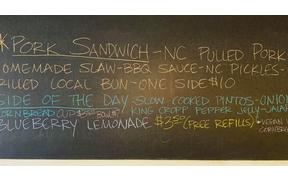 *PORK SANDWICH - NC PULLED PORK
HOMEMADE SLAW - BBQ SAUCE - NC PICKLES -
GRILLED LOCAL BUN - ONE SIDE $10
SIDE OF THE DAY - SLOW COOKED PINTOS - ONION
CORNBREAD CUP $3 BOWL KING CROPP PEPPER JELLY - JALA
BLUEBERRY LEMONADE $3.50 (FREE REFILLS) *VEGAN
CORNBREA